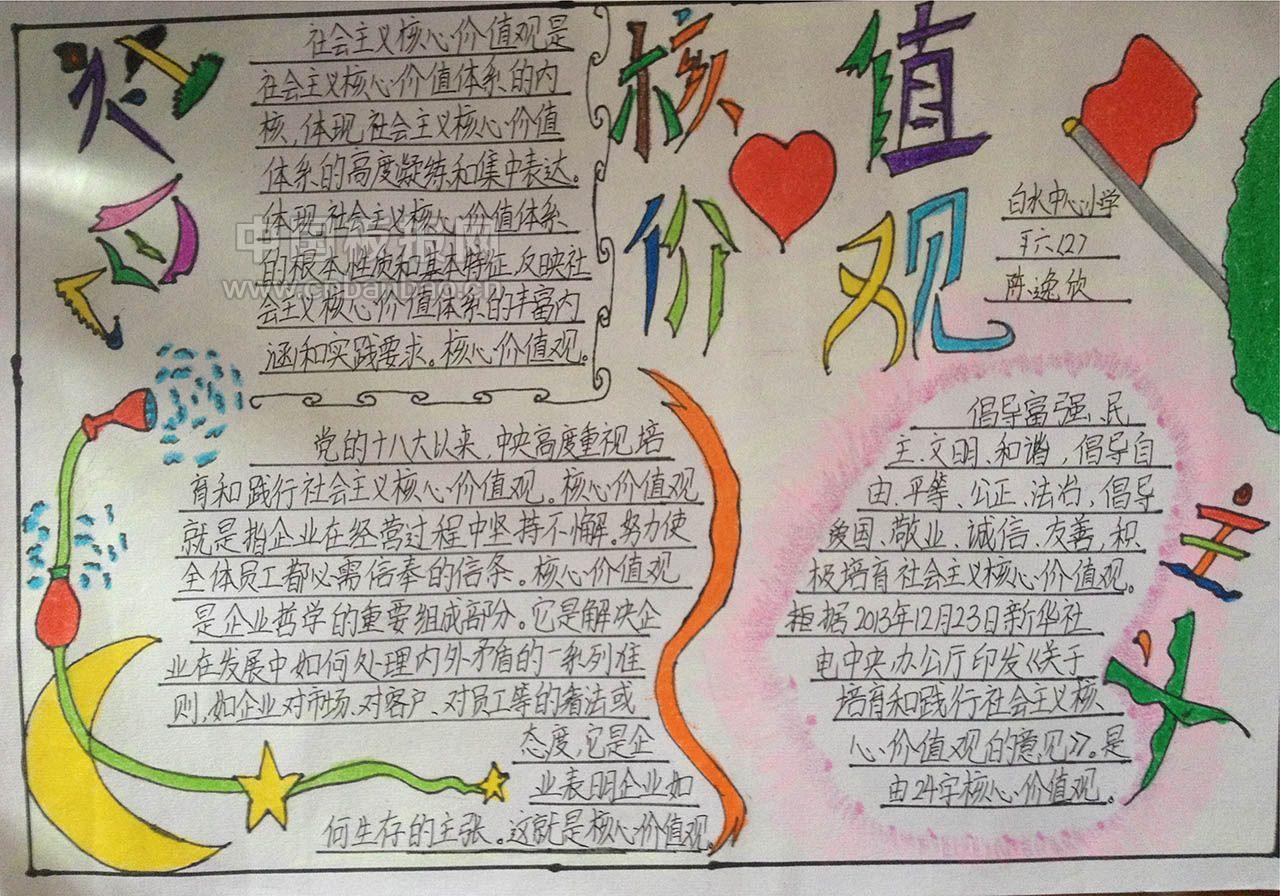 核
值
价
观
主
义
白水中心小学
六(2)
陈逸欣
社会主义核心价值观是
社会主义核心价值体系的内
核,体现社会主义核心价值
体系的高度凝练和集中表达。
体现社会主义核心价值体系
的根本性质和基本特征,反映社
会主义核心价值体系的丰富内
涵和实践要求。核心价值观。
党的十八大以来,中央高度重视培
育和践行社会主义核心价值观。核心价值观
就是指企业在经营过程中坚持不懈。努力使
全体员工都必需信奉的信条。核心价值观
是企业哲学的重要组成部分。它是解决企
业在发展中如何处理内外矛盾的一系列准
则,如企业对市场、对客户、对员工等的看法或
态度,它是企
业表明企业如
何生存的主张。这就是核心价值观。
倡导富强、民
主、文明、和谐,倡导自
由、平等、公正、法治,倡导
爱国、敬业、诚信、友善,积
极培育社会主义核心价值观。
根据2013年12月23日新华社
电中央办公厅印发《关于
培育和践行社会主义核
心价值观的意见》。是
由24字核心价值观。
www.cnbanbao.cn